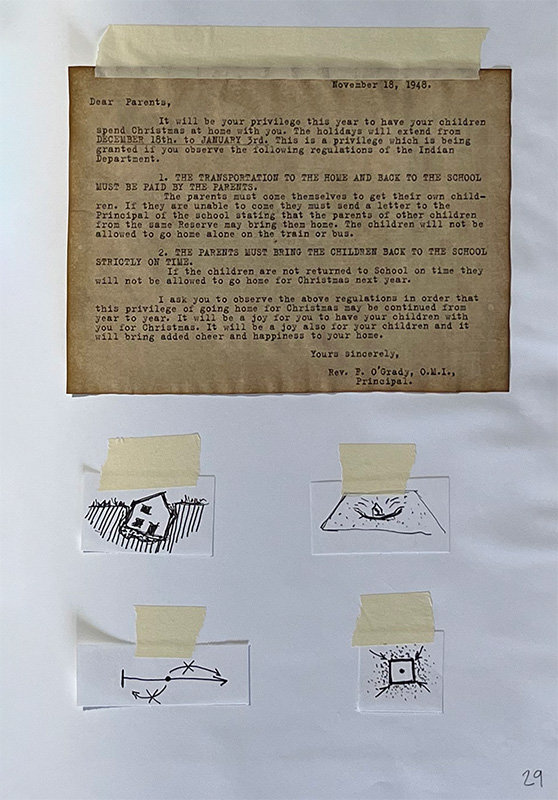 November 18, 1948.
Dear Parents,
It will be your privilege this year to have your children
spend Christmas at home with you. The holidays will extend from
DECEMBER 18th. to JANUARY 3rd. This is a privilege which is being
granted if you observe the following regulations of the Indian
Department.
1. THE TRANSPORTATION TO THE HOME AND BACK TO THE SCHOOL
MUST BE PAID BY THE PARENTS.
The parents must come themselves to get their own child-
ren. If they are unable to come they must send a letter to the
Principal of the school stating that the parents of other children
from the same Reserve may bring them home. The children will not be
allowed to go home alone on the train or bus.
2. THE PARENTS MUST BRING THE CHILDREN BACK TO THE SCHOOL
STRICTLY ON TIME.
If the children are not returned to School on time they
will not be allowed to go home for Christmas next year.
I ask you to observe the above regulations in order that
this privilege of going home for Christmas may be continued from
year to year. It will be a joy for you to have your children with
you for Christmas. It will be a joy also for your children and it
will bring added cheer and happiness to your home.
Yours sincerely,
Rev. F. O'Grady, O.M.I.,
Principal.
29